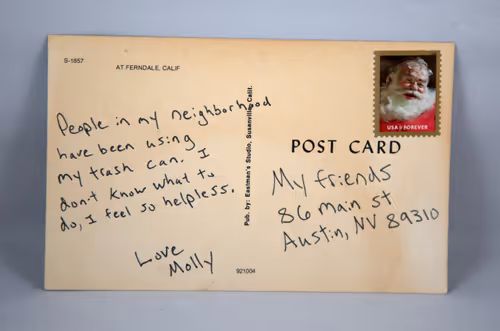 S-1857
AT FERNDALE, CALIF
People in my neighborhood
have been using
my trash can. I
don't know what to
do, I feel so helpless.
Love
Molly
Pub. by: Eastman's Studio, Susanville, Calif.
921004
USA FOREVER
POST CARD
My friends
86 Main st
Austin, NV 89310